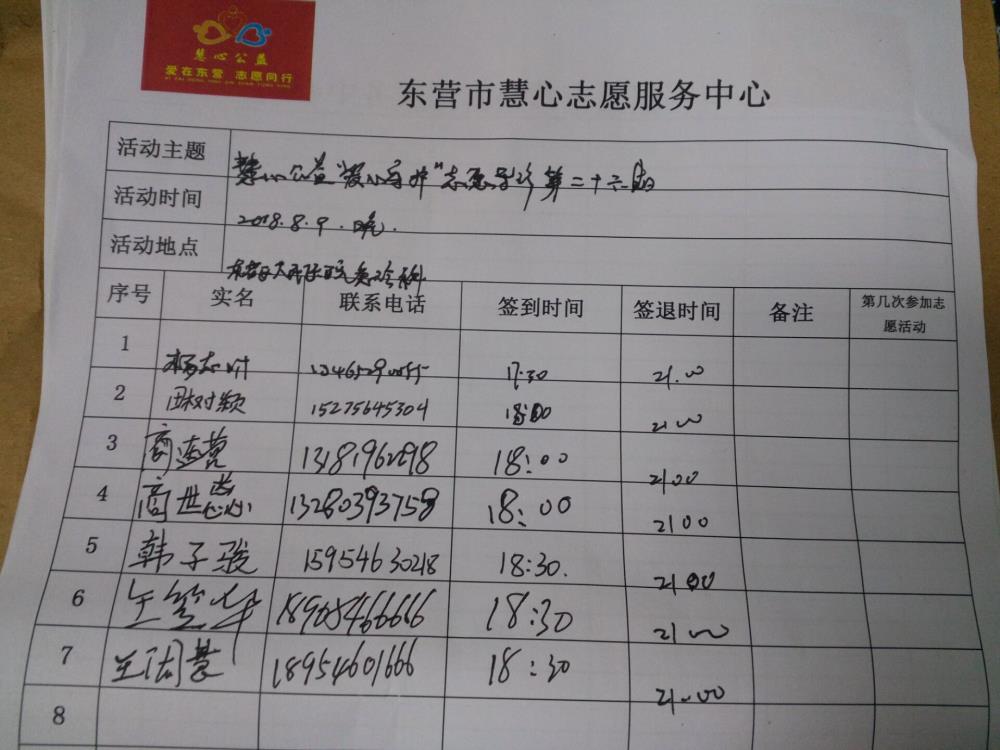 慧心公益
爱在东营 志愿同行
东营市慧心志愿服务中心
活动主题 慧心公益"爱心守护"志愿导诊第二十六期
活动时间 2018.8.9.晚.
活动地点
序号 实名 联系电话 签到时间 签退时间 备注 第几次参加志愿活动
1 17:30 21.00
2 15275645304 18:00 21.00
3 18:00 2100
4 商世忠 13280393758 18:00 2100
5 韩子骏 15954630218 18:30. 2100
6 18:30 21.00
7 18954601666 18:30 21.00
8